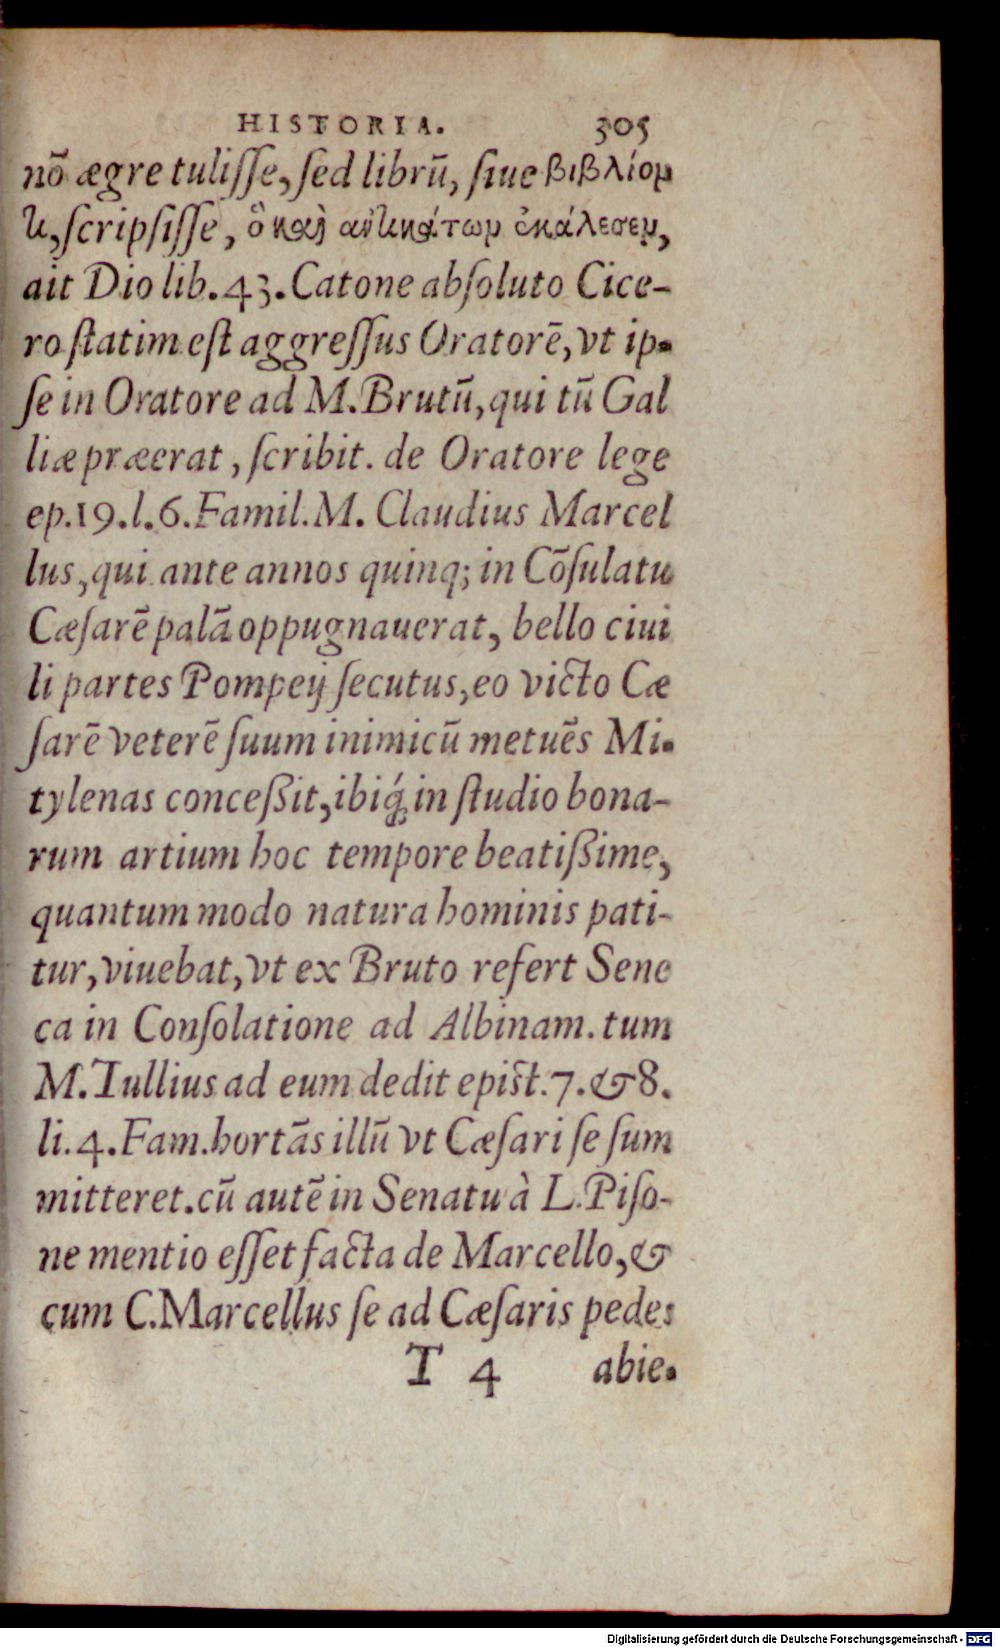 HISTORIA. 305
nō ægre tulisse, sed librū, siue βιβλίον
τι, scripsisse, ὃ καὶ ἀντικάτων ἐκάλεσεν,
ait Dio lib. 43. Catone absoluto Cice-
ro statim est aggressus Oratorē, vt ip-
se in Oratore ad M. Brutū, qui tū Gal
liæ præerat, scribit. de Oratore lege
ep. 19. l. 6. Famil. M. Claudius Marcel
lus, qui ante annos quinq; in Cōsulatu
Cæsarē palā oppugnauerat, bello ciui
li partes Pompeij secutus, eo victo Cæ
sarē veterē suum inimicū metuēs Mi-
tylenas conceßit, ibiq́; in studio bona-
rum artium hoc tempore beatißime,
quantum modo natura hominis pati-
tur, viuebat, vt ex Bruto refert Sene
ca in Consolatione ad Albinam. tum
M. Tullius ad eum dedit epist. 7. & 8.
li. 4. Fam. hortās illū vt Cæsari se sum
mitteret. cū autē in Senatu à L. Piso-
ne mentio esset facta de Marcello, &
cum C. Marcellus se ad Cæsaris pedes
T 4 abie-
Digitalisierung gefördert durch die Deutsche Forschungsgemeinschaft - DFG